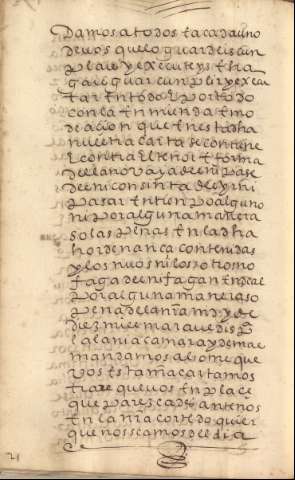 Damos a todos e a cada uno
de vos que lo guardeis cun
plais y executeys e ha
gais guardar cunplir y execu
tar en todo e por todo
con la enmienda e mo
de aςion que en esta dha
nuestra carta se contiene
e contra el tenor e forma
della no vays ni pase
des ni consintades yr ni
pasar en tienpo alguno
ni por alguna manera
so las penas en la dha
hordenança contenidas
y los unos ni los otros no
fagades ni fagan ende al
por alguna manera so
pena de la nra md y de
diez mil maravedis pa
la nra camara y demas
mandamos al ome que
vos esta mra carta mos
trare que vos enplaze
que parescades ante nos
en la nra corte do quier
que nos seamos del dia